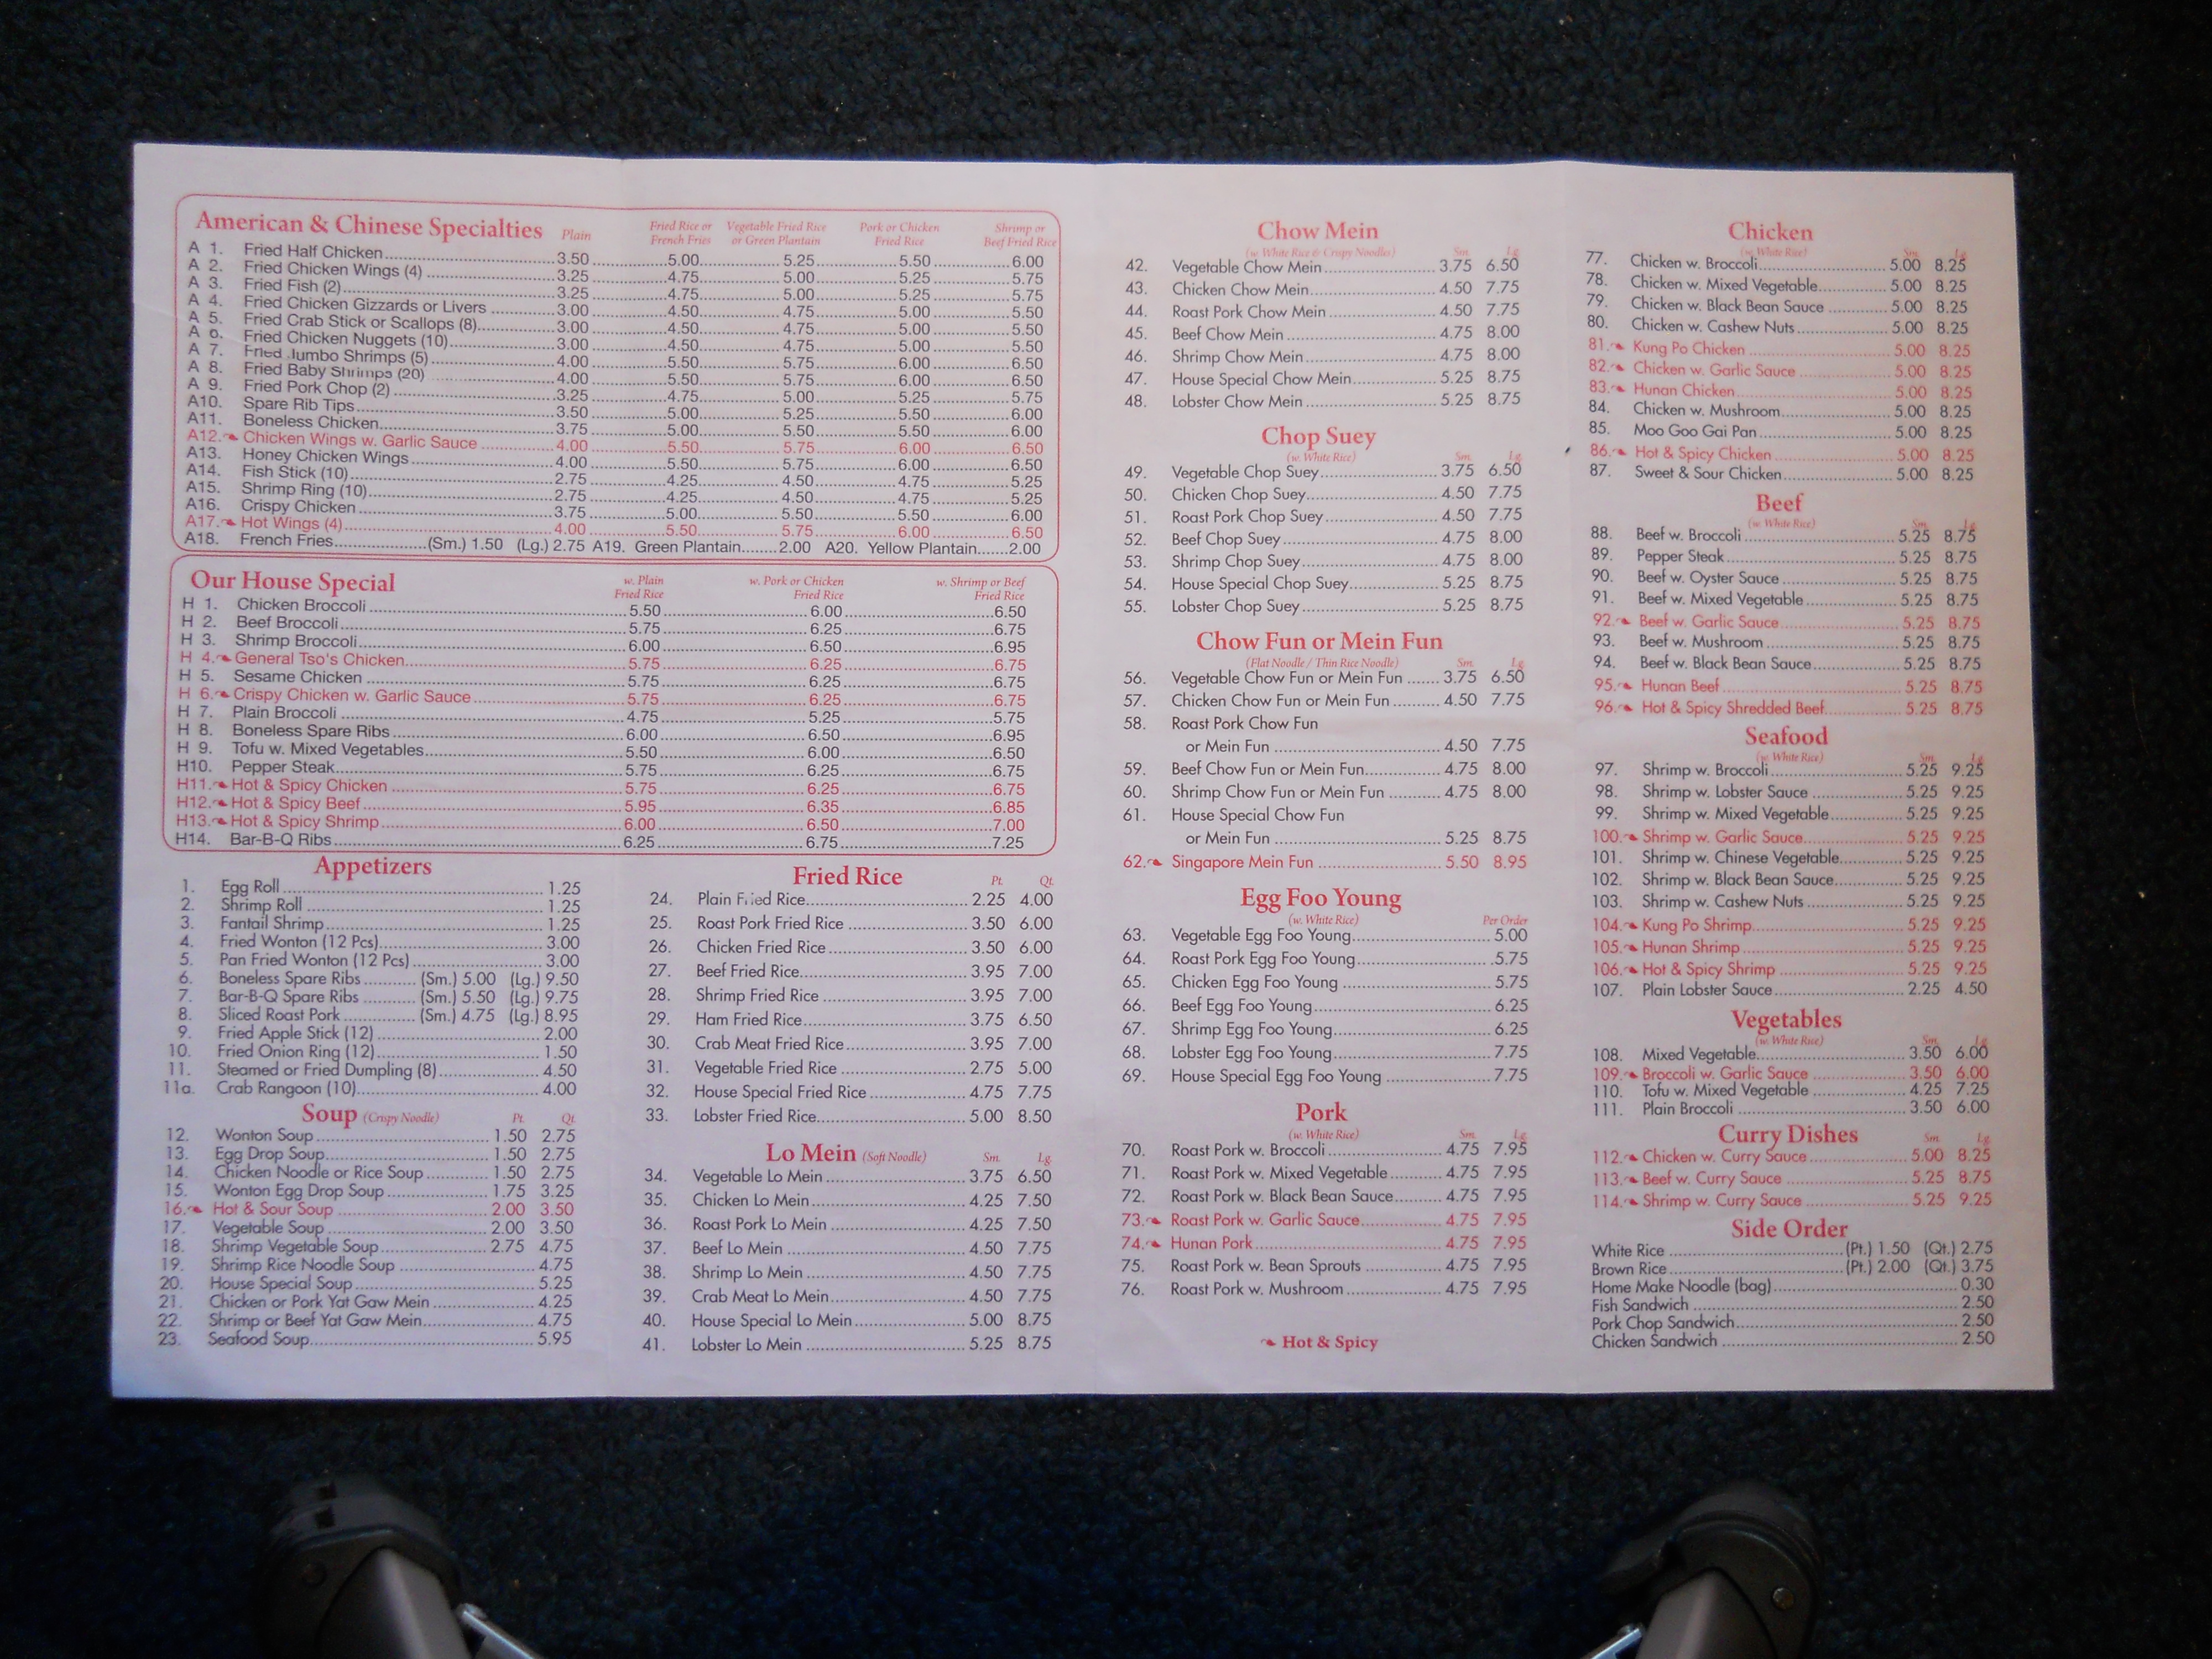 American & Chinese Specialties Plain Fried Rice or French Fries Vegetable Fried Rice or Green Plantain Pork or Chicken Fried Rice Shrimp or Beef Fried Rice
A 1. Fried Half Chicken 3.50 5.00 5.25 5.50 6.00
A 2. Fried Chicken Wings (4) 3.25 4.75 5.00 5.25 5.75
A 3. Fried Fish (2) 3.25 4.75 5.00 5.25 5.75
A 4. Fried Chicken Gizzards or Livers 3.00 4.50 4.75 5.00 5.50
A 5. Fried Crab Stick or Scallops (8) 3.00 4.50 4.75 5.00 5.50
A 6. Fried Chicken Nuggets (10) 3.00 4.50 4.75 5.00 5.50
A 7. Fried Jumbo Shrimps (5) 4.00 5.50 5.75 6.00 6.50
A 8. Fried Baby Shrimps (20) 4.00 5.50 5.75 6.00 6.50
A 9. Fried Pork Chop (2) 3.25 4.75 5.00 5.25 5.75
A10. Spare Rib Tips 3.50 5.00 5.25 5.50 6.00
A11. Boneless Chicken 3.75 5.00 5.50 5.50 6.00
A12. Chicken Wings w. Garlic Sauce 4.00 5.50 5.75 6.00 6.50
A13. Honey Chicken Wings 4.00 5.50 5.75 6.00 6.50
A14. Fish Stick (10) 2.75 4.25 4.50 4.75 5.25
A15. Shrimp Ring (10) 2.75 4.25 4.50 4.75 5.25
A16. Crispy Chicken 3.75 5.00 5.50 5.50 6.00
A17. Hot Wings (4) 4.00 5.50 5.75 6.00 6.50
A18. French Fries (Sm.) 1.50 (Lg.) 2.75 A19. Green Plantain 2.00 A20. Yellow Plantain 2.00
Our House Special w. Plain Fried Rice w. Pork or Chicken Fried Rice w. Shrimp or Beef Fried Rice
H 1. Chicken Broccoli 5.50 6.00 6.50
H 2. Beef Broccoli 5.75 6.25 6.75
H 3. Shrimp Broccoli 6.00 6.50 6.95
H 4. General Tso's Chicken 5.75 6.25 6.75
H 5. Sesame Chicken 5.75 6.25 6.75
H 6. Crispy Chicken w. Garlic Sauce 5.75 6.25 6.75
H 7. Plain Broccoli 4.75 5.25 5.75
H 8. Boneless Spare Ribs 6.00 6.50 6.95
H 9. Tofu w. Mixed Vegetables 5.50 6.00 6.50
H10. Pepper Steak 5.75 6.25 6.75
H11. Hot & Spicy Chicken 5.75 6.25 6.75
H12. Hot & Spicy Beef 5.95 6.35 6.85
H13. Hot & Spicy Shrimp 6.00 6.50 7.00
H14. Bar-B-Q Ribs 6.25 6.75 7.25
Appetizers
1. Egg Roll 1.25
2. Shrimp Roll 1.25
3. Fantail Shrimp 1.25
4. Fried Wonton (12 Pcs) 3.00
5. Pan Fried Wonton (12 Pcs) 3.00
6. Boneless Spare Ribs (Sm.) 5.00 (Lg.) 9.50
7. Bar-B-Q Spare Ribs (Sm.) 5.50 (Lg.) 9.75
8. Sliced Roast Pork (Sm.) 4.75 (Lg.) 8.95
9. Fried Apple Stick (12) 2.00
10. Fried Onion Ring (12) 1.50
11. Steamed or Fried Dumpling (8) 4.50
11a. Crab Rangoon (10) 4.00
Soup (Crispy Noodle) Pt. Qt.
12. Wonton Soup 1.50 2.75
13. Egg Drop Soup 1.50 2.75
14. Chicken Noodle or Rice Soup 1.50 2.75
15. Wonton Egg Drop Soup 1.75 3.25
16. Hot & Sour Soup 2.00 3.50
17. Vegetable Soup 2.00 3.50
18. Shrimp Vegetable Soup 2.75 4.75
19. Shrimp Rice Noodle Soup 4.75
20. House Special Soup 5.25
21. Chicken or Pork Yat Gaw Mein 4.25
22. Shrimp or Beef Yat Gaw Mein 4.75
23. Seafood Soup 5.95
Fried Rice Pt. Qt.
24. Plain Fried Rice 2.25 4.00
25. Roast Pork Fried Rice 3.50 6.00
26. Chicken Fried Rice 3.50 6.00
27. Beef Fried Rice 3.95 7.00
28. Shrimp Fried Rice 3.95 7.00
29. Ham Fried Rice 3.75 6.50
30. Crab Meat Fried Rice 3.95 7.00
31. Vegetable Fried Rice 2.75 5.00
32. House Special Fried Rice 4.75 7.75
33. Lobster Fried Rice 5.00 8.50
Lo Mein (Soft Noodle) Sm. Lg.
34. Vegetable Lo Mein 3.75 6.50
35. Chicken Lo Mein 4.25 7.50
36. Roast Pork Lo Mein 4.25 7.50
37. Beef Lo Mein 4.50 7.75
38. Shrimp Lo Mein 4.50 7.75
39. Crab Meat Lo Mein 4.50 7.75
40. House Special Lo Mein 5.00 8.75
41. Lobster Lo Mein 5.25 8.75
Chow Mein
(w. White Rice & Crispy Noodles) Sm. Lg.
42. Vegetable Chow Mein 3.75 6.50
43. Chicken Chow Mein 4.50 7.75
44. Roast Pork Chow Mein 4.50 7.75
45. Beef Chow Mein 4.75 8.00
46. Shrimp Chow Mein 4.75 8.00
47. House Special Chow Mein 5.25 8.75
48. Lobster Chow Mein 5.25 8.75
Chop Suey
(w. White Rice) Sm. Lg.
49. Vegetable Chop Suey 3.75 6.50
50. Chicken Chop Suey 4.50 7.75
51. Roast Pork Chop Suey 4.50 7.75
52. Beef Chop Suey 4.75 8.00
53. Shrimp Chop Suey 4.75 8.00
54. House Special Chop Suey 5.25 8.75
55. Lobster Chop Suey 5.25 8.75
Chow Fun or Mein Fun
(Flat Noodle / Thin Rice Noodle) Sm. Lg.
56. Vegetable Chow Fun or Mein Fun 3.75 6.50
57. Chicken Chow Fun or Mein Fun 4.50 7.75
58. Roast Pork Chow Fun
or Mein Fun 4.50 7.75
59. Beef Chow Fun or Mein Fun 4.75 8.00
60. Shrimp Chow Fun or Mein Fun 4.75 8.00
61. House Special Chow Fun
or Mein Fun 5.25 8.75
62. Singapore Mein Fun 5.50 8.95
Egg Foo Young
(w. White Rice) Per Order
63. Vegetable Egg Foo Young 5.00
64. Roast Pork Egg Foo Young 5.75
65. Chicken Egg Foo Young 5.75
66. Beef Egg Foo Young 6.25
67. Shrimp Egg Foo Young 6.25
68. Lobster Egg Foo Young 7.75
69. House Special Egg Foo Young 7.75
Pork
(w. White Rice) Sm. Lg.
70. Roast Pork w. Broccoli 4.75 7.95
71. Roast Pork w. Mixed Vegetable 4.75 7.95
72. Roast Pork w. Black Bean Sauce 4.75 7.95
73. Roast Pork w. Garlic Sauce 4.75 7.95
74. Hunan Pork 4.75 7.95
75. Roast Pork w. Bean Sprouts 4.75 7.95
76. Roast Pork w. Mushroom 4.75 7.95
Hot & Spicy
Chicken
(w. White Rice) Sm. Lg.
77. Chicken w. Broccoli 5.00 8.25
78. Chicken w. Mixed Vegetable 5.00 8.25
79. Chicken w. Black Bean Sauce 5.00 8.25
80. Chicken w. Cashew Nuts 5.00 8.25
81. Kung Po Chicken 5.00 8.25
82. Chicken w. Garlic Sauce 5.00 8.25
83. Hunan Chicken 5.00 8.25
84. Chicken w. Mushroom 5.00 8.25
85. Moo Goo Gai Pan 5.00 8.25
86. Hot & Spicy Chicken 5.00 8.25
87. Sweet & Sour Chicken 5.00 8.25
Beef
(w. White Rice) Sm. Lg.
88. Beef w. Broccoli 5.25 8.75
89. Pepper Steak 5.25 8.75
90. Beef w. Oyster Sauce 5.25 8.75
91. Beef w. Mixed Vegetable 5.25 8.75
92. Beef w. Garlic Sauce 5.25 8.75
93. Beef w. Mushroom 5.25 8.75
94. Beef w. Black Bean Sauce 5.25 8.75
95. Hunan Beef 5.25 8.75
96. Hot & Spicy Shredded Beef 5.25 8.75
Seafood
(w. White Rice) Sm. Lg.
97. Shrimp w. Broccoli 5.25 9.25
98. Shrimp w. Lobster Sauce 5.25 9.25
99. Shrimp w. Mixed Vegetable 5.25 9.25
100. Shrimp w. Garlic Sauce 5.25 9.25
101. Shrimp w. Chinese Vegetable 5.25 9.25
102. Shrimp w. Black Bean Sauce 5.25 9.25
103. Shrimp w. Cashew Nuts 5.25 9.25
104. Kung Po Shrimp 5.25 9.25
105. Hunan Shrimp 5.25 9.25
106. Hot & Spicy Shrimp 5.25 9.25
107. Plain Lobster Sauce 2.25 4.50
Vegetables
(w. White Rice) Sm. Lg.
108. Mixed Vegetable 3.50 6.00
109. Broccoli w. Garlic Sauce 3.50 6.00
110. Tofu w. Mixed Vegetable 4.25 7.25
111. Plain Broccoli 3.50 6.00
Curry Dishes Sm. Lg.
112. Chicken w. Curry Sauce 5.00 8.25
113. Beef w. Curry Sauce 5.25 8.75
114. Shrimp w. Curry Sauce 5.25 9.25
Side Order
White Rice (Pt.) 1.50 (Qt.) 2.75
Brown Rice (Pt.) 2.00 (Qt.) 3.75
Home Make Noodle (bag) 0.30
Fish Sandwich 2.50
Pork Chop Sandwich 2.50
Chicken Sandwich 2.50